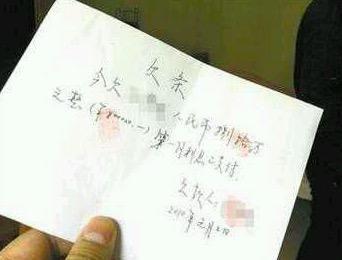 欠条
今欠 人民币捌拾万
元整(¥800000.—)第一月利息已支付.
欠款人:
2010年元月2日